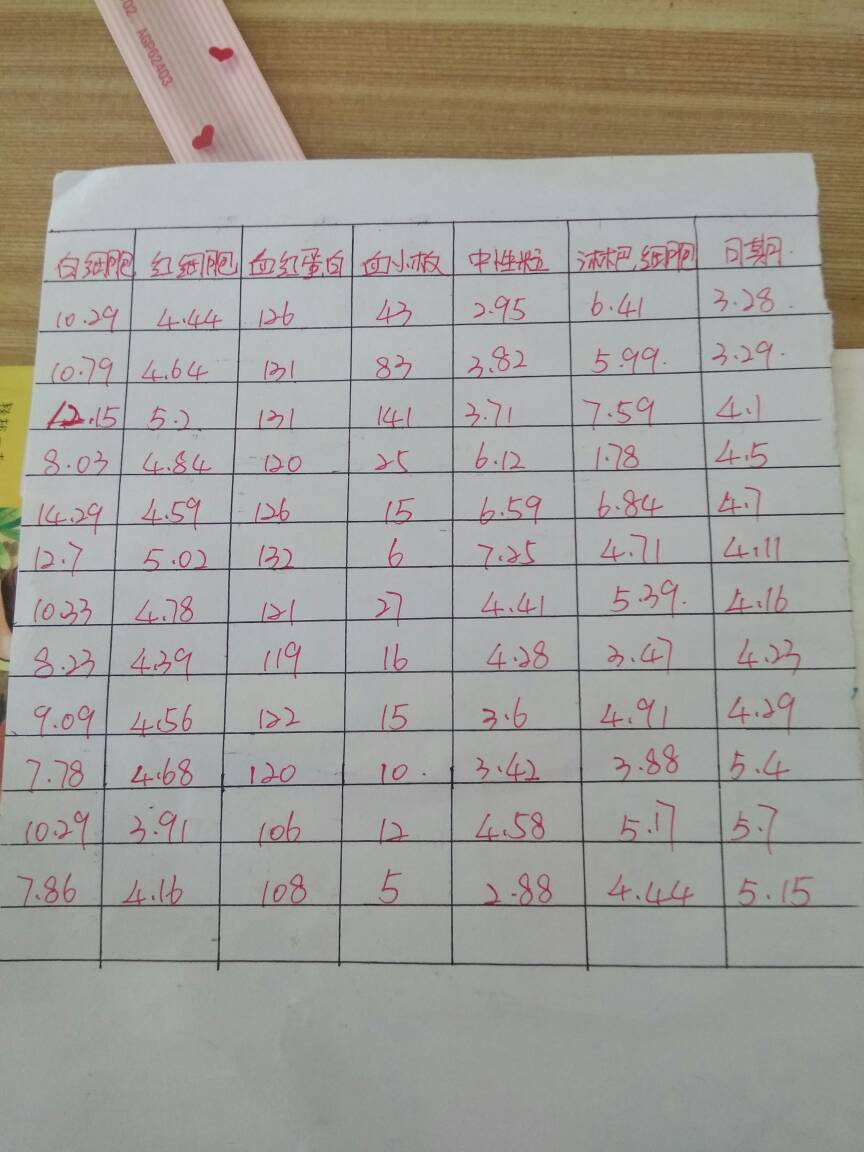 02 AGP62403
白细胞 红细胞 血红蛋白 血小板 中性粒 淋巴细胞 日期
10.29 4.44 126 43 2.95 6.41 3.28
10.79 4.64 131 83 3.82 5.99 3.29
12.15 5.2 131 141 3.71 7.59 4.1
8.03 4.84 120 25 6.12 1.78 4.5
14.29 4.59 126 15 6.59 6.84 4.7
12.7 5.02 132 6 7.25 4.71 4.11
10.33 4.78 121 27 4.41 5.39 4.16
8.23 4.39 119 16 4.28 3.47 4.23
9.09 4.56 122 15 3.6 4.91 4.29
7.78 4.68 120 10 3.42 3.88 5.4
10.29 3.91 106 12 4.58 5.17 5.7
7.86 4.16 108 5 2.88 4.44 5.15